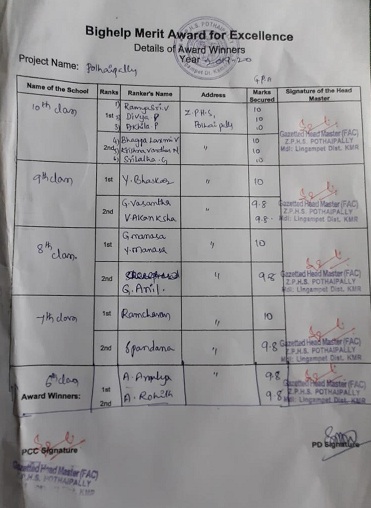 Bighelp Merit Award for Excellence
Details of Award Winners
Year 2019-20
Project Name: Pothaipally
G.P.A
Name of the School Ranks Ranker's Name Address Marks Secured Signature of the Head Master
10th class 1st 1) Ramya Sri.V Z.P.H.S, 10
2) Divya.P Pothaipally 10
3) Akhila P 10
2nd 4) Bhagya Laxmi V " 10
5) Krishna Vardhan N 10
6) Srilatha.G 10
Gazetted Head Master (FAC)
Z.P.H.S. POTHAIPALLY
Mdl: Lingampet Dist. KMR
9th class 1st Y. Bhaskar " 10
2nd G. Vasantha " 9.8
V Akanksha 9.8
Gazetted Head Master (FAC)
Z.P.H.S. POTHAIPALLY
Mdl: Lingampet Dist, KMR
8th class 1st G. manasa " 10
Y. manasa
2nd G. Anil. " 9.8
Gazetted Head Master (FAC)
Z.P.H.S. POTHAIPALLY
Mdl: Lingampet Dist, KMR
7th class 1st Ramcharan " 10
2nd Spandana " 9.8
Gazetted Head Master (FAC)
Z.P.H.S. POTHAIPALLY
Mdl: Lingampet Dist, KMR
6th class 1st A. Ananya " 9.8
Award Winners: 2nd A. Rohith 9.8
Gazetted Head Master (FAC)
Z.P.H.S. POTHAIPALLY
Mdl: Lingampet Dist. KMR
PCC Signature
PD Signature
Gazetted Head Master (FAC)
Z.P.H.S. POTHAIPALLY
Mdl: Lingampet Dist, KMR